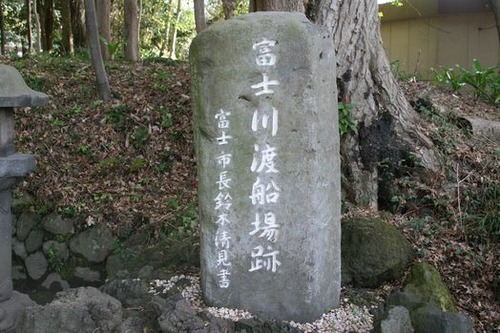 富士川渡船場跡
富士市長鈴木清見書